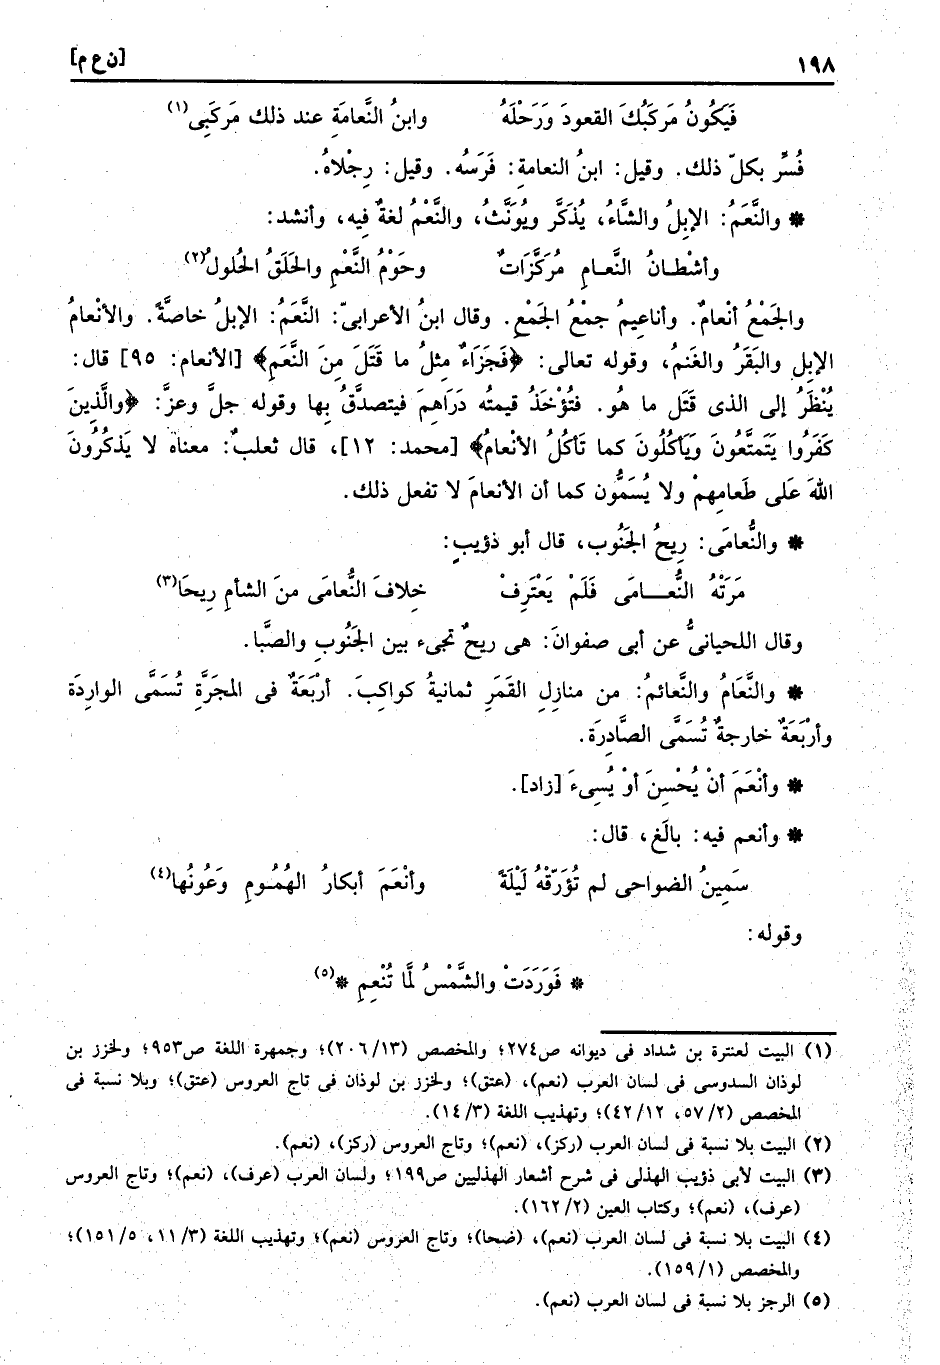 ١٩٨ [ن ع م]
فَيَكُونُ مَركَبُكَ القعودَ وَرَحْلَهُ وابنُ النَّعامَةِ عند ذلك مَركَبِى(١)
فُسِّرَ بكلّ ذلك. وقيل: ابنُ النعامةِ: فَرَسُه. وقيل: رِجْلاهُ.
* والنَّعَمُ: الإبلُ والشَّاءُ، يُذَكَّر ويُونَّثُ، والنَّعْمُ لغةٌ فيه، وأنشد:
وأشْطـانُ النَّعـامِ مُركَّزَاتٌ وحَوْمُ النَّعْمِ والحَلَقُ الحُلولُ(٢)
والجَمْعُ أنْعامٌ. وأناعِيمُ جمْعُ الجَمْعِ. وقال ابنُ الأعرابىّ: النَّعَمُ: الإبلُ خاصَّةً. والأنْعامُ
الإبلِ والبَقَرُ والغَنمُ، وقوله تعالى: ﴿فَجَزَاءٌ مِثلُ ما قَتَلَ مِنَ النَّعَمِ﴾ [الأنعام: ٩٥] قال:
يُنْظَرُ إلى الذى قَتَل ما هُو. فتُؤْخَذُ قيمتُه دَرَاهِمَ فيتصدَّقُ بها وقوله جلَّ وعزَّ: ﴿والَّذِينَ
كَفَرُوا يَتَمتَّعُونَ وَيَأكُلُونَ كما تَأكُلُ الأنْعامُ﴾ [محمد: ١٢]، قال ثعلبٌ: معناه لا يَذكُرُونَ
اللهَ عَلى طَعامِهمْ ولا يُسَمُّون كما أن الأنعامَ لا تفعل ذلك.
* والنُّعامَى: رِيحُ الجَنُوب، قال أبو ذؤيبٍ:
مَرَتْهُ النُّعـــامَى فَلَمْ يَعْتَرِفْ خِلافَ النُّعامَى منَ الشأمِ رِيحَا(٣)
وقال اللحيانىُّ عن أبى صفوانَ: هى ريحٌ تجىء بين الجَنُوبِ والصَّبا.
* والنَّعَامُ والنَّعائمُ: من منازِلِ القَمَرِ ثمانيةُ كواكِبَ. أرْبَعَةٌ فى المجَرَّةِ تُسَمَّى الوارِدَةَ
وأرْبَعَةٌ خارجةٌ تُسَمَّى الصَّادِرَةَ.
* وأنْعَمَ أنْ يُحْسِنَ أوْ يُسِىءَ [زاد].
* وأنعم فيه: بالَغ، قال:
سَمِينُ الضواحى لم تُؤَرِّقهُ لَيْلَةً وأنْعَمَ أبكارُ الهُمُومِ وَعُونُها(٤)
وقوله:
* فَوَرَدَتْ والشَّمْسُ لمَّا تُنْعِمِ *(٥)
(١) البيت لعنترة بن شداد فى ديوانه ص٢٧٤؛ والمخصص (١٣/ ٢٠٦)؛ وجمهرة اللغة ص٩٥٣؛ ولخزز بن
لوذان السدوسى فى لسان العرب (نعم)، (عتق)؛ ولخزز بن لوذان فى تاج العروس (عتق)؛ وبلا نسبة فى
المخصص (٢/ ٥٧، ١٢/ ٤٢)؛ وتهذيب اللغة (٣/ ١٤).
(٢) البيت بلا نسبة فى لسان العرب (ركز)، (نعم)؛ وتاج العروس (ركز)، (نعم).
(٣) البيت لأبى ذؤيب الهذلى فى شرح أشعار الهذليين ص١٩٩؛ ولسان العرب (عرف)، (نعم)؛ وتاج العروس
(عرف)، (نعم)؛ وكتاب العين (٢/ ١٦٢).
(٤) البيت بلا نسبة فى لسان العرب (نعم)، (ضحا)؛ وتاج العروس (نعم)؛ وتهذيب اللغة (٣/ ١١، ٥/ ١٥١)؛
والمخصص (١/ ١٥٩).
(٥) الرجز بلا نسبة فى لسان العرب (نعم).